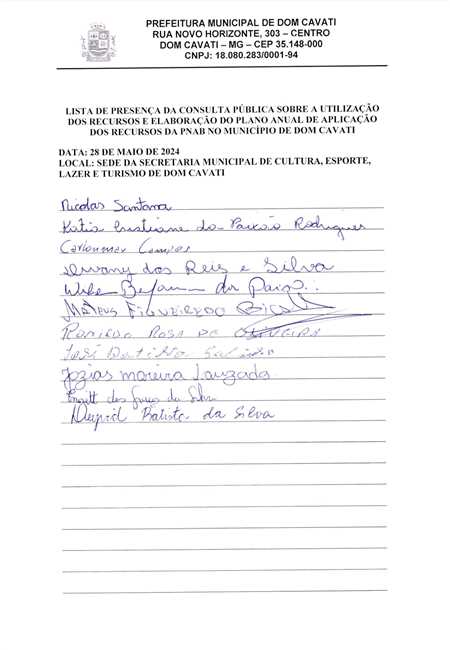 PREFEITURA MUNICIPAL DE DOM CAVATI
RUA NOVO HORIZONTE, 303 – CENTRO
DOM CAVATI – MG – CEP 35.148-000
CNPJ: 18.080.283/0001-94
LISTA DE PRESENÇA DA CONSULTA PÚBLICA SOBRE A UTILIZAÇÃO
DOS RECURSOS E ELABORAÇÃO DO PLANO ANUAL DE APLICAÇÃO
DOS RECURSOS DA PNAB NO MUNICÍPIO DE DOM CAVATI
DATA: 28 DE MAIO DE 2024
LOCAL: SEDE DA SECRETARIA MUNICIPAL DE CULTURA, ESPORTE,
LAZER E TURISMO DE DOM CAVATI
Nicolas Santana
Kátia Cristiane da Paixão Rodrigues
Campos
dos Reis e Silva
da Paixo
Mateus Figueiredo
Rosa de Oliveira
José Batista
Jozias Moreira Louzada
da Silva
Batista da Silva